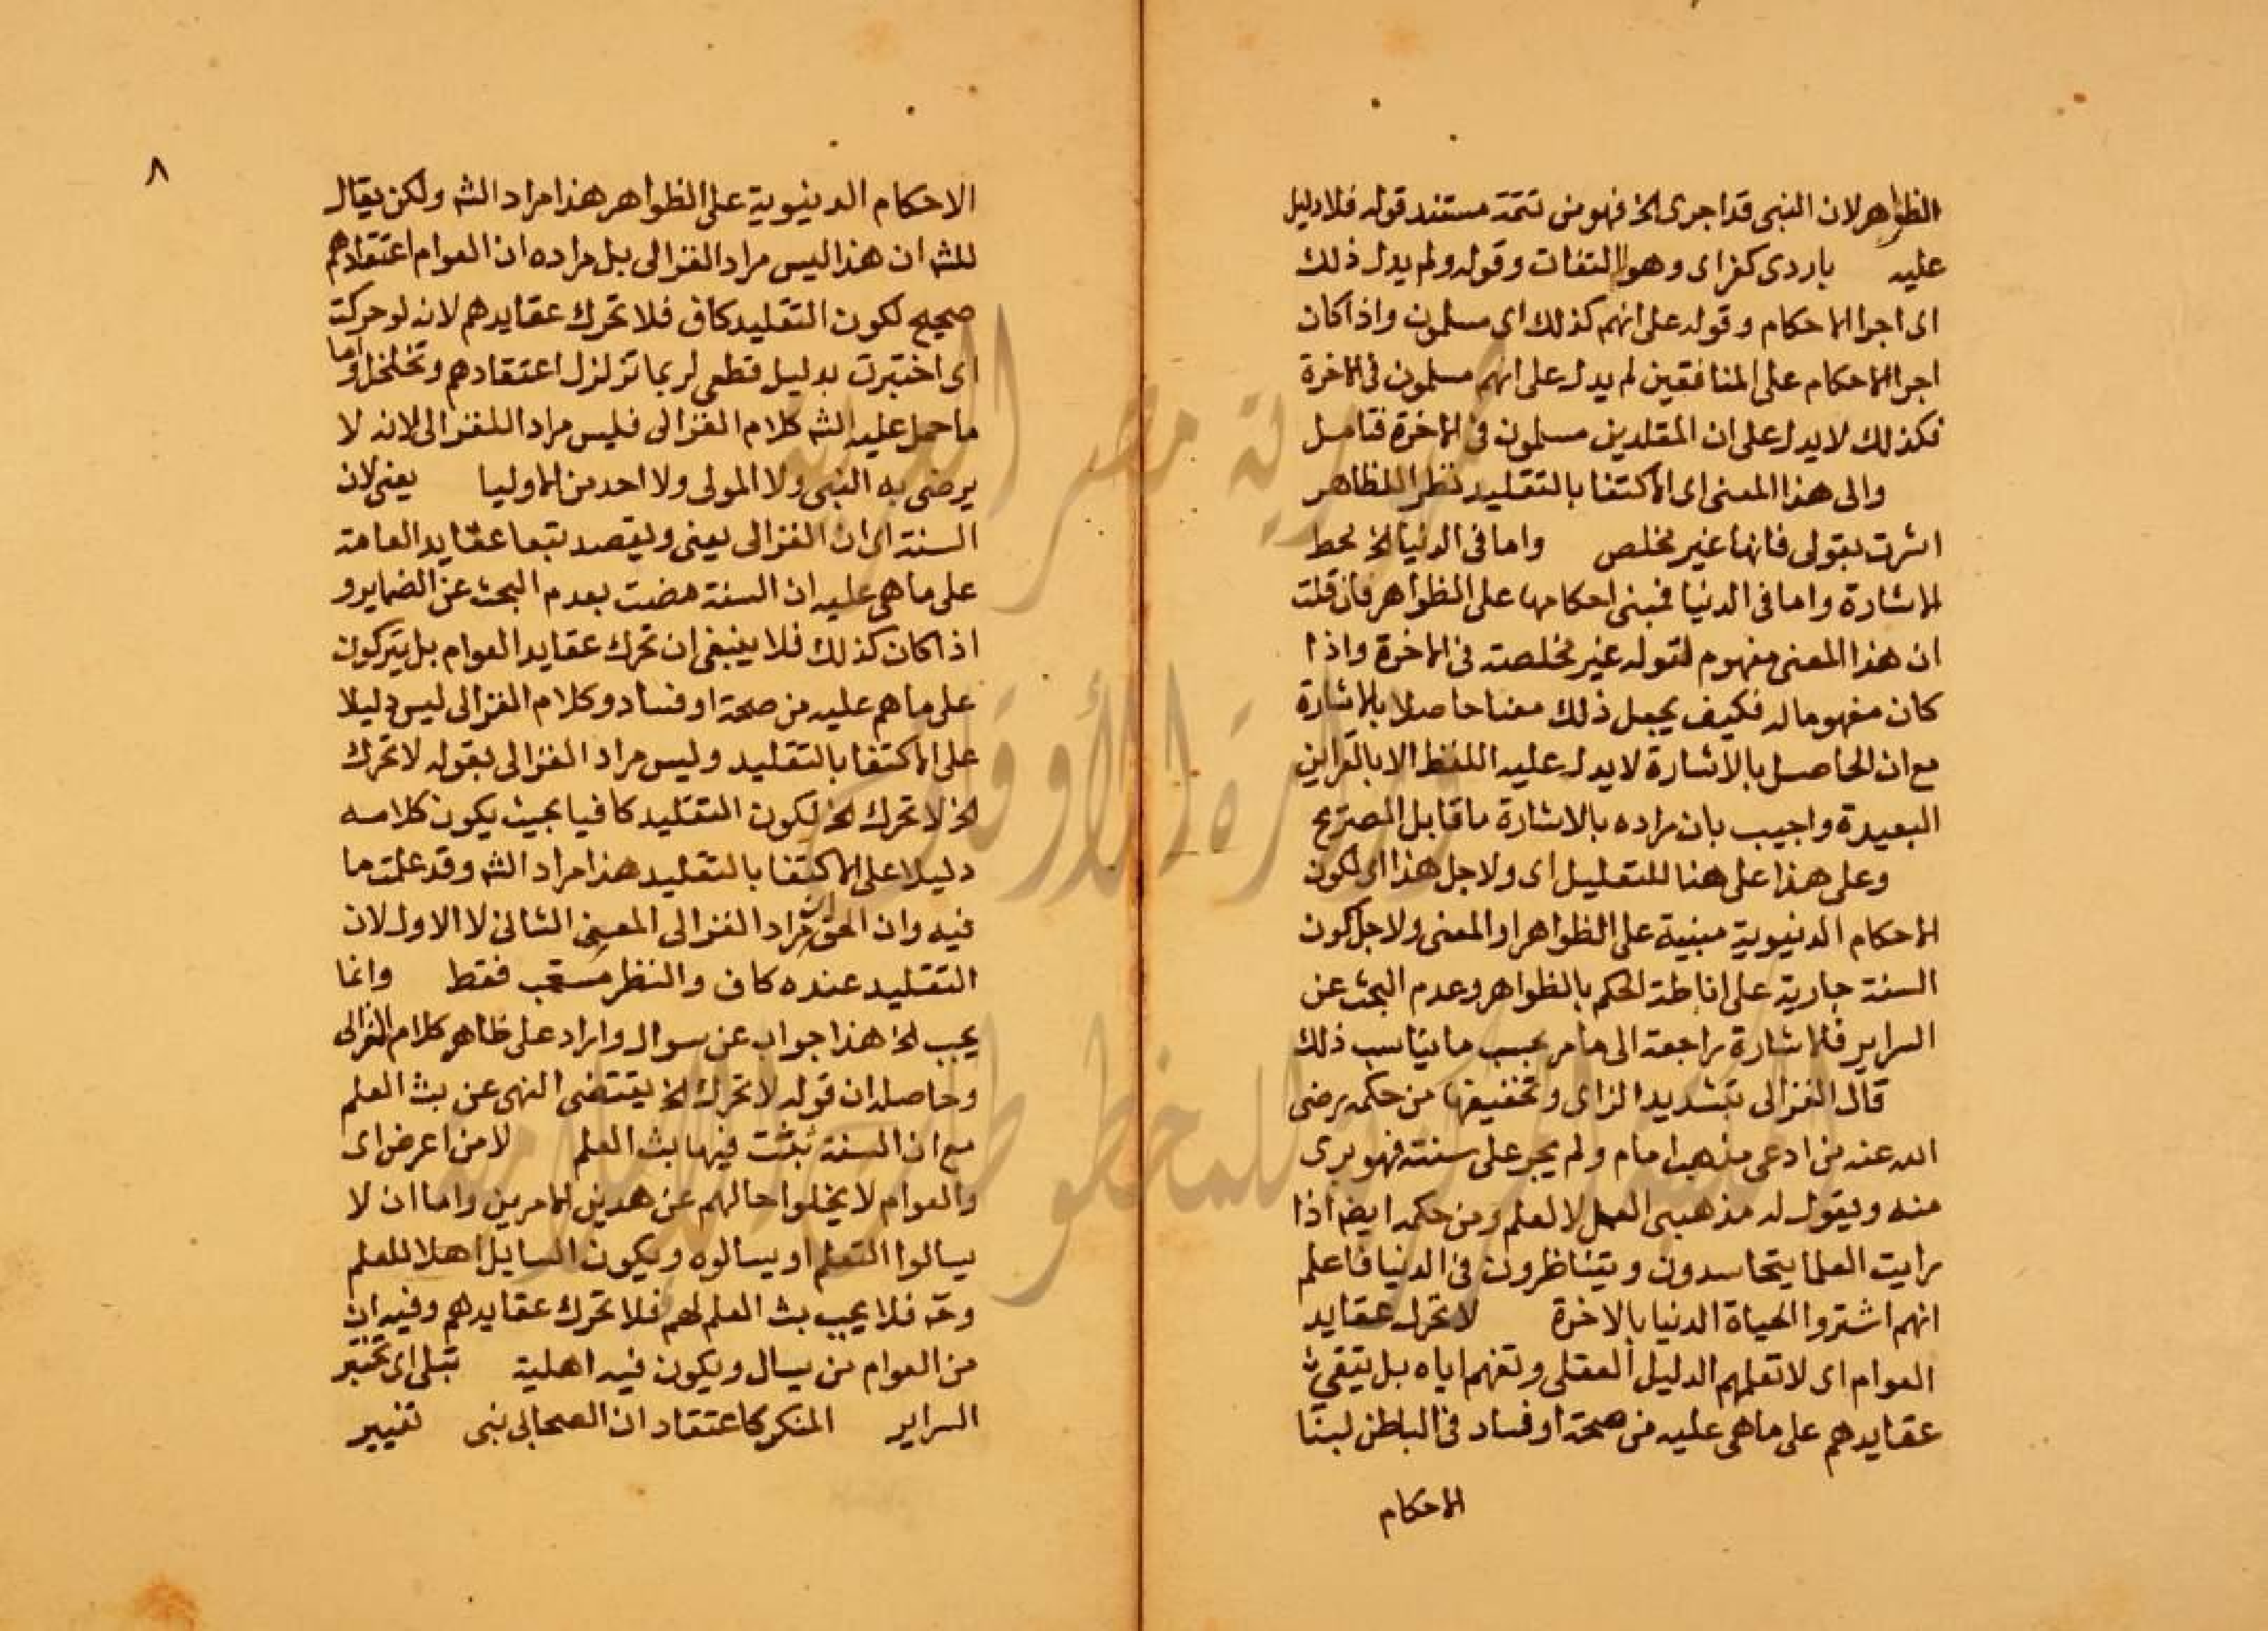 الظواهر لان النبى قد اجرى الخ فهو من تتمة مستند قوله فلا دليل
عليه باردى كغزاى وهو التفات وقوله ولم يدل ذلك
اى اجرا الاحكام وقوله على انهم كذلك اى مسلمون واذا كان
اجرا الاحكام على المنافقين لم يدل على انهم مسلمون فى الاخرة
فكذلك لا يدل على ان المقلدين مسلمون فى الاخرة فتامل
والى هذا المعنى اى الاكتفا بالتقليد نظرا للظاهر
اشرت بقولى فانها غير مخلص واما فى الدنيا الخ محط
الاشارة واما فى الدنيا فمبنى احكامها على الظواهر فان قلت
ان هذا المعنى مفهوم لقوله غير مخلصة فى الاخرة واذا
كان مفهوما له فكيف يجعل ذلك معنا حاصلا بالاشارة
مع ان الحاصل بالاشارة لا يدل عليه اللفظ الا بالقراين
البعيدة واجيب بان مراده بالاشارة ما قابل الصريح
وعلى هذا على هنا للتعليل اى ولاجل هذا اى لكون
الاحكام الدنيوية مبنية على الظواهر او المعنى ولاجل كون
السنة جارية على اناطة الحكم بالظواهر وعدم البحث عن
السراير فالاشارة راجعة الى ما مر بحسب ما يناسب ذلك
قال الغزالى بتشديد الزاى وتخفيفها من حكمه رضى
الله عنه من ادعى مذهب امام ولم يجر على سنته فهو برى
منه ويقول له مذهبى العمل لا العلم ومن حكمه ايضا اذا
رايت العلما يتحاسدون ويتناظرون فى الدنيا فاعلم
انهم اشتروا الحياة الدنيا بالاخرة لا تحرك عقايد
العوام اى لا تعلمهم الدليل العقلى وتفهم اياه بل تبقى
عقايدهم على ما هى عليه من صحة او فساد فى الباطن لبنا
الاحكام
٨
الاحكام الدنيوية على الظواهر هذا مراد الشه ولكن يقال
للشه ان هذا ليس مراد الغزالى بل مراده ان العوام اعتقادهم
صحيح لكون التقليد كاف فلا تحرك عقايدهم لانه لو حركت
اى اختبرت بدليل قطعى لربما تزلزل اعتقادهم وتخلخل واما
ما حمل عليه الشه كلام الغزالى فليس مراد للغزالى لانه لا
يرضى به النبى ولا المولى ولا احد من الاوليا يعنى لان
السنة اى ان الغزالى يعنى ويقصد بتبعا عقايد العامة
على ما هى عليه ان السنة مضت بعدم البحث عن الضماير و
اذا كان كذلك فلا ينبغى ان تحرك عقايد العوام بل يتركون
على ما هم عليه من صحة او فساد وكلام الغزالى ليس دليلا
على الاكتفا بالتقليد وليس مراد الغزالى بقوله لا تحرك
الخ لا تحرك الخ لكون التقليد كافيا بحيث يكون كلامه
دليلا على الاكتفا بالتقليد هذا مراد الشه وقد علمت ما
فيه وان الحق ان مراد الغزالى المعنى الثانى لا الاول لان
التقليد عنده كاف والنظر مستحب فقط وانما
يجب الخ هذا جواب عن سوال وايراد على ظاهر كلام الغزالى
وحاصله ان قوله لا تحرك الخ يقتضى النهى عن بث العلم
مع ان السنة ثبتت فيها بث العلم لا من اعرض اى
والعوام لا يخلوا حالهم عن هدين الامرين واما ان لا
يسالوا التعلم او يسالوه ويكون السايل اهلا للعلم
وحه فلا يجب بث العلم لهم فلا تحرك عقايدهم وفيه ان
من العوام من يسال ويكون فيه اهلية تبلى اى تختبر
السراير المنكر كاعتقاد ان الصحابى نبى تغيير